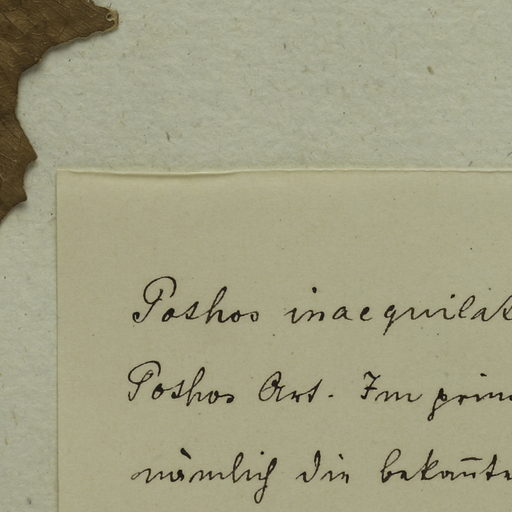 Pothos inaequilat
Pothos Art. Im prim
nämlich die bekan̅te